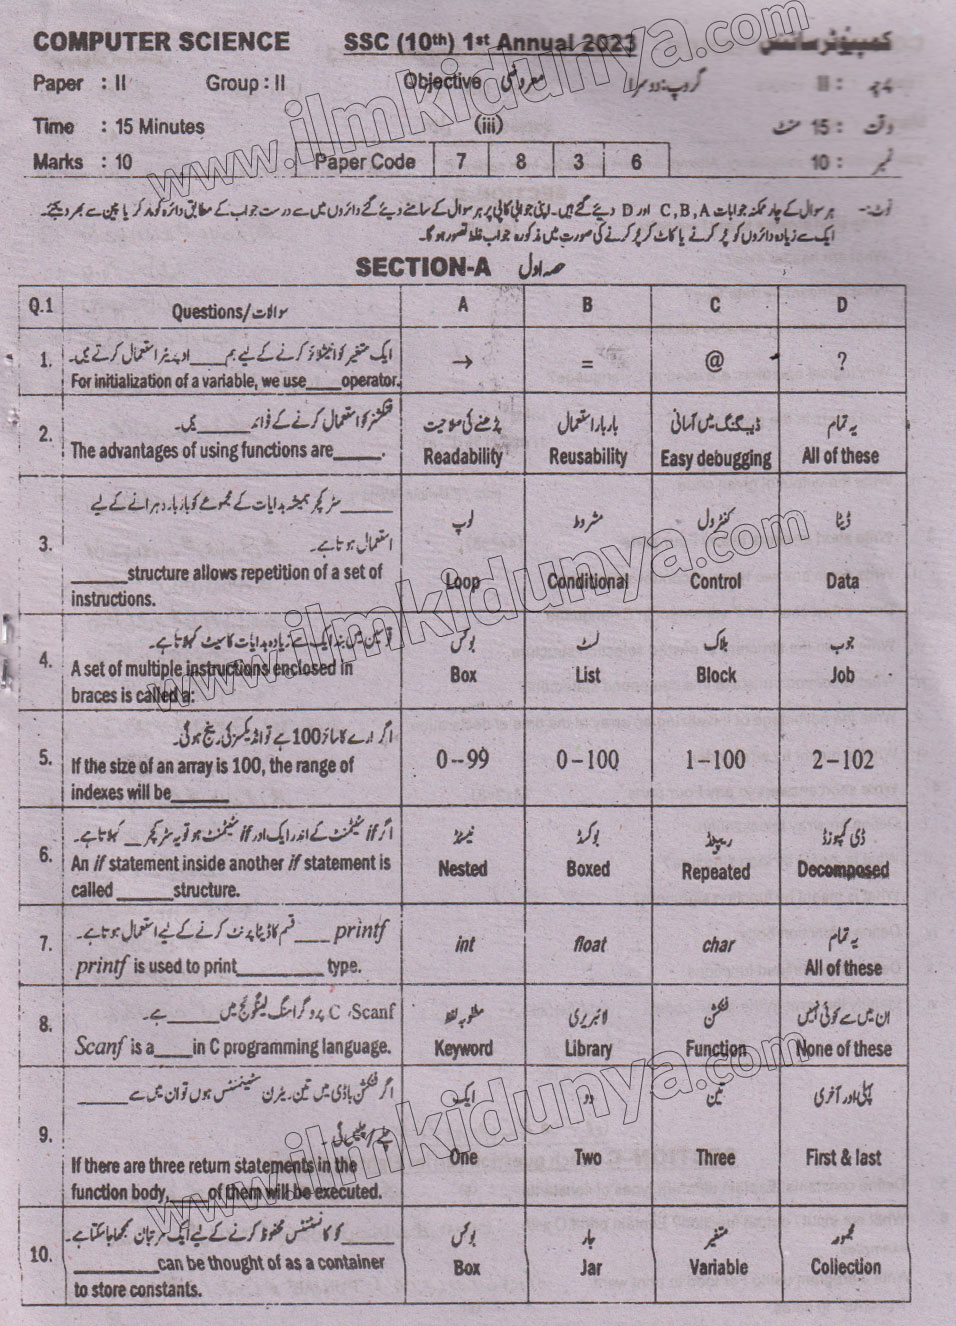 COMPUTER SCIENCE SSC (10th) 1st Annual 2023 کمپیوٹر سائنس
Paper : II Group : II Objective معروضی گروپ: دوسرا پرچہ : II
Time : 15 Minutes (iii) وقت : 15 منٹ
Marks : 10 Paper Code 7 8 3 6 نمبر : 10
نوٹ:- ہر سوال کے چار ممکنہ جوابات C, B, A اور D دیئے گئے ہیں۔ اپنی جوابی کاپی پر ہر سوال کے سامنے دیئے گئے دائروں میں سے درست جواب کے مطابق دائرہ کو مارکر یا پین سے بھر دیجئے۔
ایک سے زیادہ دائروں کو پُر کرنے یا کاٹ کر پُر کرنے کی صورت میں مذکورہ جواب غلط تصور ہو گا۔
SECTION-A حصہ اول
Q.1 Questions/سوالات A B C D
1. ایک متغیر کو انیشلائز کرنے کے لیے ہم ____ اوپریٹر استعمال کرتے ہیں۔
For initialization of a variable, we use____operator. → = @ ?
2. فنکشنز کو استعمال کرنے کے فوائد ______ ہیں۔ پڑھنے کی صلاحیت بار بار استعمال ڈیبگنگ میں آسانی یہ تمام
The advantages of using functions are_____. Readability Reusability Easy debugging All of these
3. ______ سٹرکچر ہمیشہ ہدایات کے مجموعے کو بار بار دہرانے کے لیے
استعمال ہوتا ہے۔ لوپ مشروط کنٹرول ڈیٹا
______structure allows repetition of a set of
instructions. Loop Conditional Control Data
4. قوسین میں بند ایک سے زیادہ ہدایات کا سیٹ کہلاتا ہے۔ بوکس لسٹ بلاک جوب
A set of multiple instructions enclosed in
braces is called a: Box List Block Job
5. اگر ارے کا سائز 100 ہے تو انڈیکسز کی رینج ہو گی۔
If the size of an array is 100, the range of
indexes will be______ 0--99 0--100 1--100 2--102
6. اگر if سٹیٹمنٹ کے اندر ایک اور if سٹیٹمنٹ ہو تو یہ سٹرکچر __ کہلاتا ہے۔ نیسٹڈ بوکسڈ ریپیٹڈ ڈی کمپوزڈ
An if statement inside another if statement is
called ______structure. Nested Boxed Repeated Decomposed
7. printf ____ قسم کا ڈیٹا پرنٹ کرنے کے لیے استعمال ہوتا ہے۔ یہ تمام
printf is used to print_________ type. int float char All of these
8. Scanf، C پروگرامنگ لینگوئج میں ______ ہے۔ مطلوبہ لفظ لائبریری فنکشن ان میں سے کوئی نہیں
Scanf is a____in C programming language. Keyword Library Function None of these
9. اگر فنکشن باڈی میں تین ریٹرن سٹیٹمنٹس ہوں تو ان میں سے ______ ایک دو تین پہلی اور آخری
If there are three return statements in the
function body,____of them will be executed. One Two Three First & last
10. ______ کو کانسٹنٹس محفوظ کرنے کے لیے ایک مرتبان سمجھا جا سکتا ہے۔ بوکس جار متغیر
_________can be thought of as a container
to store constants. Box Jar Variable Collection
www.ilmkidunya.com
www.ilmkidunya.com
www.ilmkidunya.com